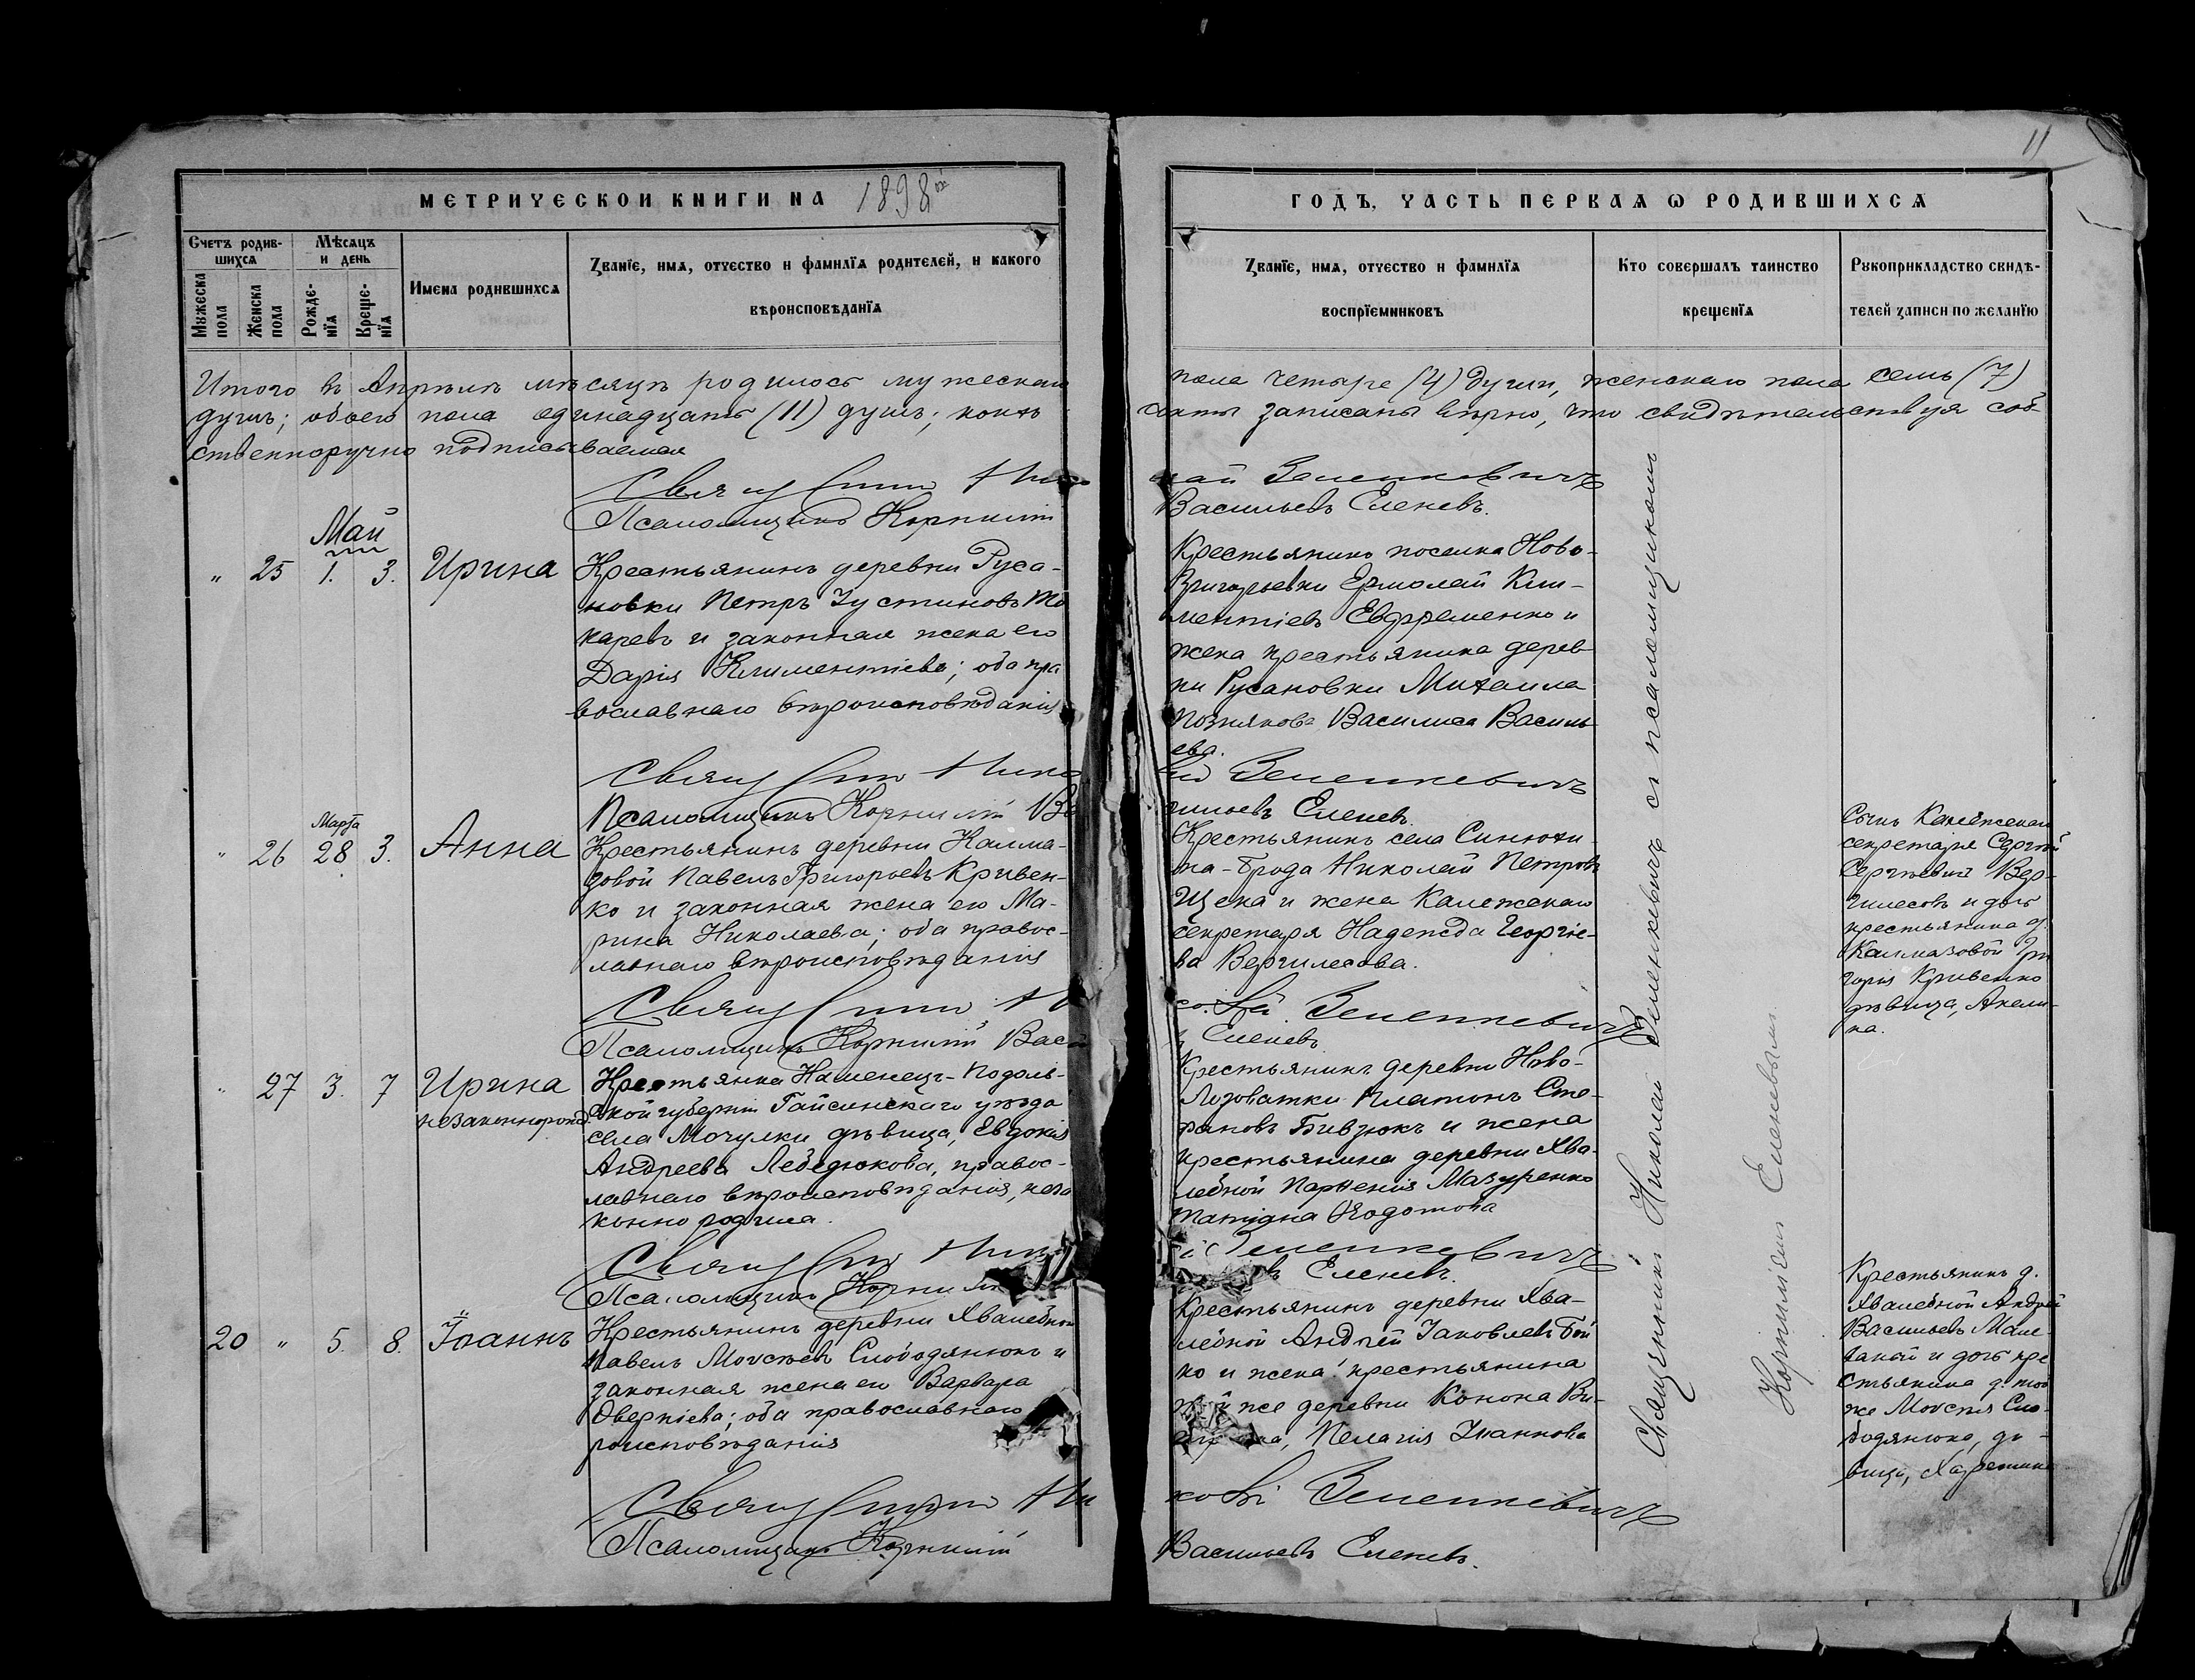 11
МЕТРИЧЕСКОЙ КНИГИ НА 1898ой
ГОДЪ, ЧАСТЬ ПЕРВАЯ Ѡ РОДИВШИХСЯ
Счетъ родив-
шихся
Мужеска пола
Женска пола
Мѣсяцъ
и день
Рожде-
нїя
Креще-
нїя
Имена родившихся
Званїе, имя, отчество и фамилїя родителей, и какого
вѣроисповѣданїя
Званїе, имя, отчество и фамилїя
воспрїемниковъ
Кто совершалъ таинство
крещенїя
Рукоприкладство свидѣ-
телей записи по желанїю
Итого въ Апрѣлѣ мѣсяцѣ родилось мужескаго
душъ; обоего пола одинадцать (11) душъ;
ственноручно подписываемся
пола четыре (4) души, женскаго пола семь (7)
акты записаны вѣрно, что свидѣтельствуя соб-
Священникъ Ни
Псаломщикъ Корнилій
лай Зеленкевичъ
Васильевъ Еленевъ.
Май
" 25 1. 3. Ирина
Крестьянинъ деревни Руса-
новки Петръ Іустиновъ То
каревъ и законная жена его
Дарія Климентіева; оба пра
вославнаго вѣроисповѣданія
Крестьянинъ поселка Ново-
Григорьевки Ермолай Кли-
ментіевъ Евфременко и
жена крестьянина дерев-
ни Русановки Михаила
Познякова Василиса Василь
ева.
Священникъ Нико
Псаломщикъ Корнилій Ва
Зеленкевичъ
сильевъ Еленевъ.
Марта
" 26 28 3. Анна
Крестьянинъ деревни Калма-
зовой Павелъ Григорьевъ Кривен-
ко и законная жена его Ма-
рина Николаева; оба правос-
лавнаго вѣроисповѣданія
Крестьянинъ села Синюхи-
на-Брода Николай Петровъ
Щека и жена Колежскаго
секретаря Надежда Георгіе-
ва Вергилесова.
Сынъ Колежскаго
секретаря Сергѣй
Сергѣевичъ Вер-
гилесовъ и дочь
крестьянина д.
Калмазовой Гри
горія Кривенко
дѣвица, Акели-
на.
Священникъ Н
Псаломщикъ Корнилій Васи
Зеленкевичъ
Еленевъ
" 27 3. 7 Ирина
незаконнорожд.
Крестьянка Каменецъ-Подоль-
ской губерніи Гайсинскаго уѣзда
села Мочулки дѣвица, Евдокія
Андреева Лебедюкова, правос-
лавнаго вѣроисповѣданія, неза
конно родила.
Крестьянинъ деревни Ново-
Лозоватки Платонъ Сте-
фановъ Бивзюкъ и жена
крестьянина деревни Хва-
лебной Парѳенія Мазуренко
Татіана Ѳодотова
Священникъ Ник
Псаломщикъ Корнилій
Зеленкевичъ
въ Еленевъ.
20 " 5. 8. Іоаннъ
Крестьянинъ деревни Хвалебной
Павелъ Моѵсѣевъ Слободянюкъ и
законная жена его Варвара
Аверкіева; оба православнаго
роисповѣданія
Крестьянинъ деревни Хва-
лебной Андрей Іаковлевъ Бой
ко и жена крестьянина
же деревни Конона Ви-
Пелагія Іоаннова
Крестьянинъ д.
Хвалебной Андрей
Васильевъ Мале-
ваный и дочь кре
стьянина д. той
же Моѵсея Сло-
бодянюка, дѣ-
вица,
Священникъ Ни
Псаломщикъ Корнилій
колай Зеленкевичъ
Васильевъ Еленевъ.
Священникъ Николай Зеленкевичъ съ псаломщикомъ
Корниліемъ Еленевымъ